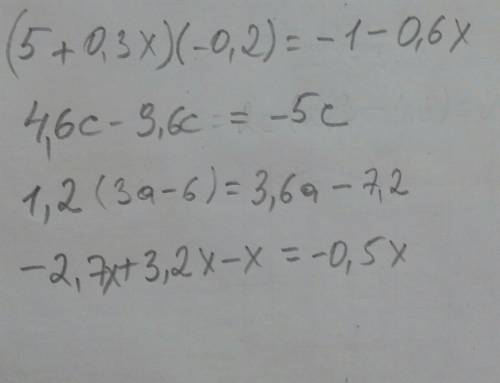 (5+0,3x)(-0,2)=-1-0,6x
4,6c-9,6c=-5c
1,2(3a-6)=3,6a-7,2
-2,7x+3,2x-x=-0,5x